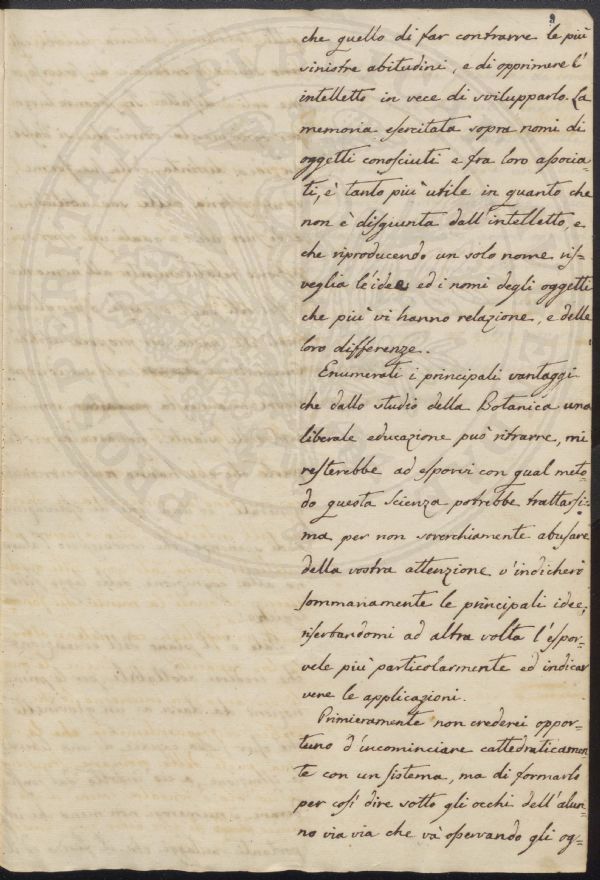 9
che quello di far contrarre le più
sinistre abitudini, e di opprimere l'
intelletto in vece di svilupparlo. La
memoria esercitata sopra nomi di
oggetti conosciuti e fra loro associa=
ti, è tanto più utile in quanto che
non è disgiunta dall'intelletto, e
che riproducendo un solo nome ris=
veglia le idee ed i nomi degli oggetti
che più vi hanno relazione, e delle
loro differenze.
Enumerati i principali vantaggi
che dallo studio della Botanica una
liberale educazione può ritrarre, mi
resterebbe ad esporvi con qual meto=
do questa scienza potrebbe trattarsi=
ma per non soverchiamente abusare
della vostra attenzione v'indicherò
sommariamente le principali idee,
riserbandomi ad altra volta l'espor=
vele più particolarmente ed indicar
vene le applicazioni.
Primieramente non crederei oppor=
tuno d'incominciare cattedraticamen
te con un sistema, ma di formarlo
per così dire sotto gli occhi dell'alun=
no via via che và osservando gli og=